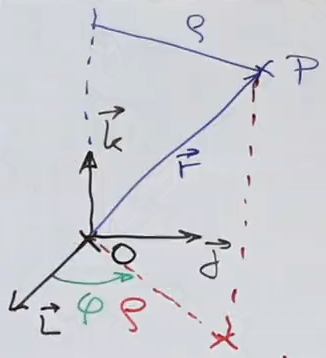 ρ
P
k⃗
r⃗
O
j⃗
i⃗
φ ρ